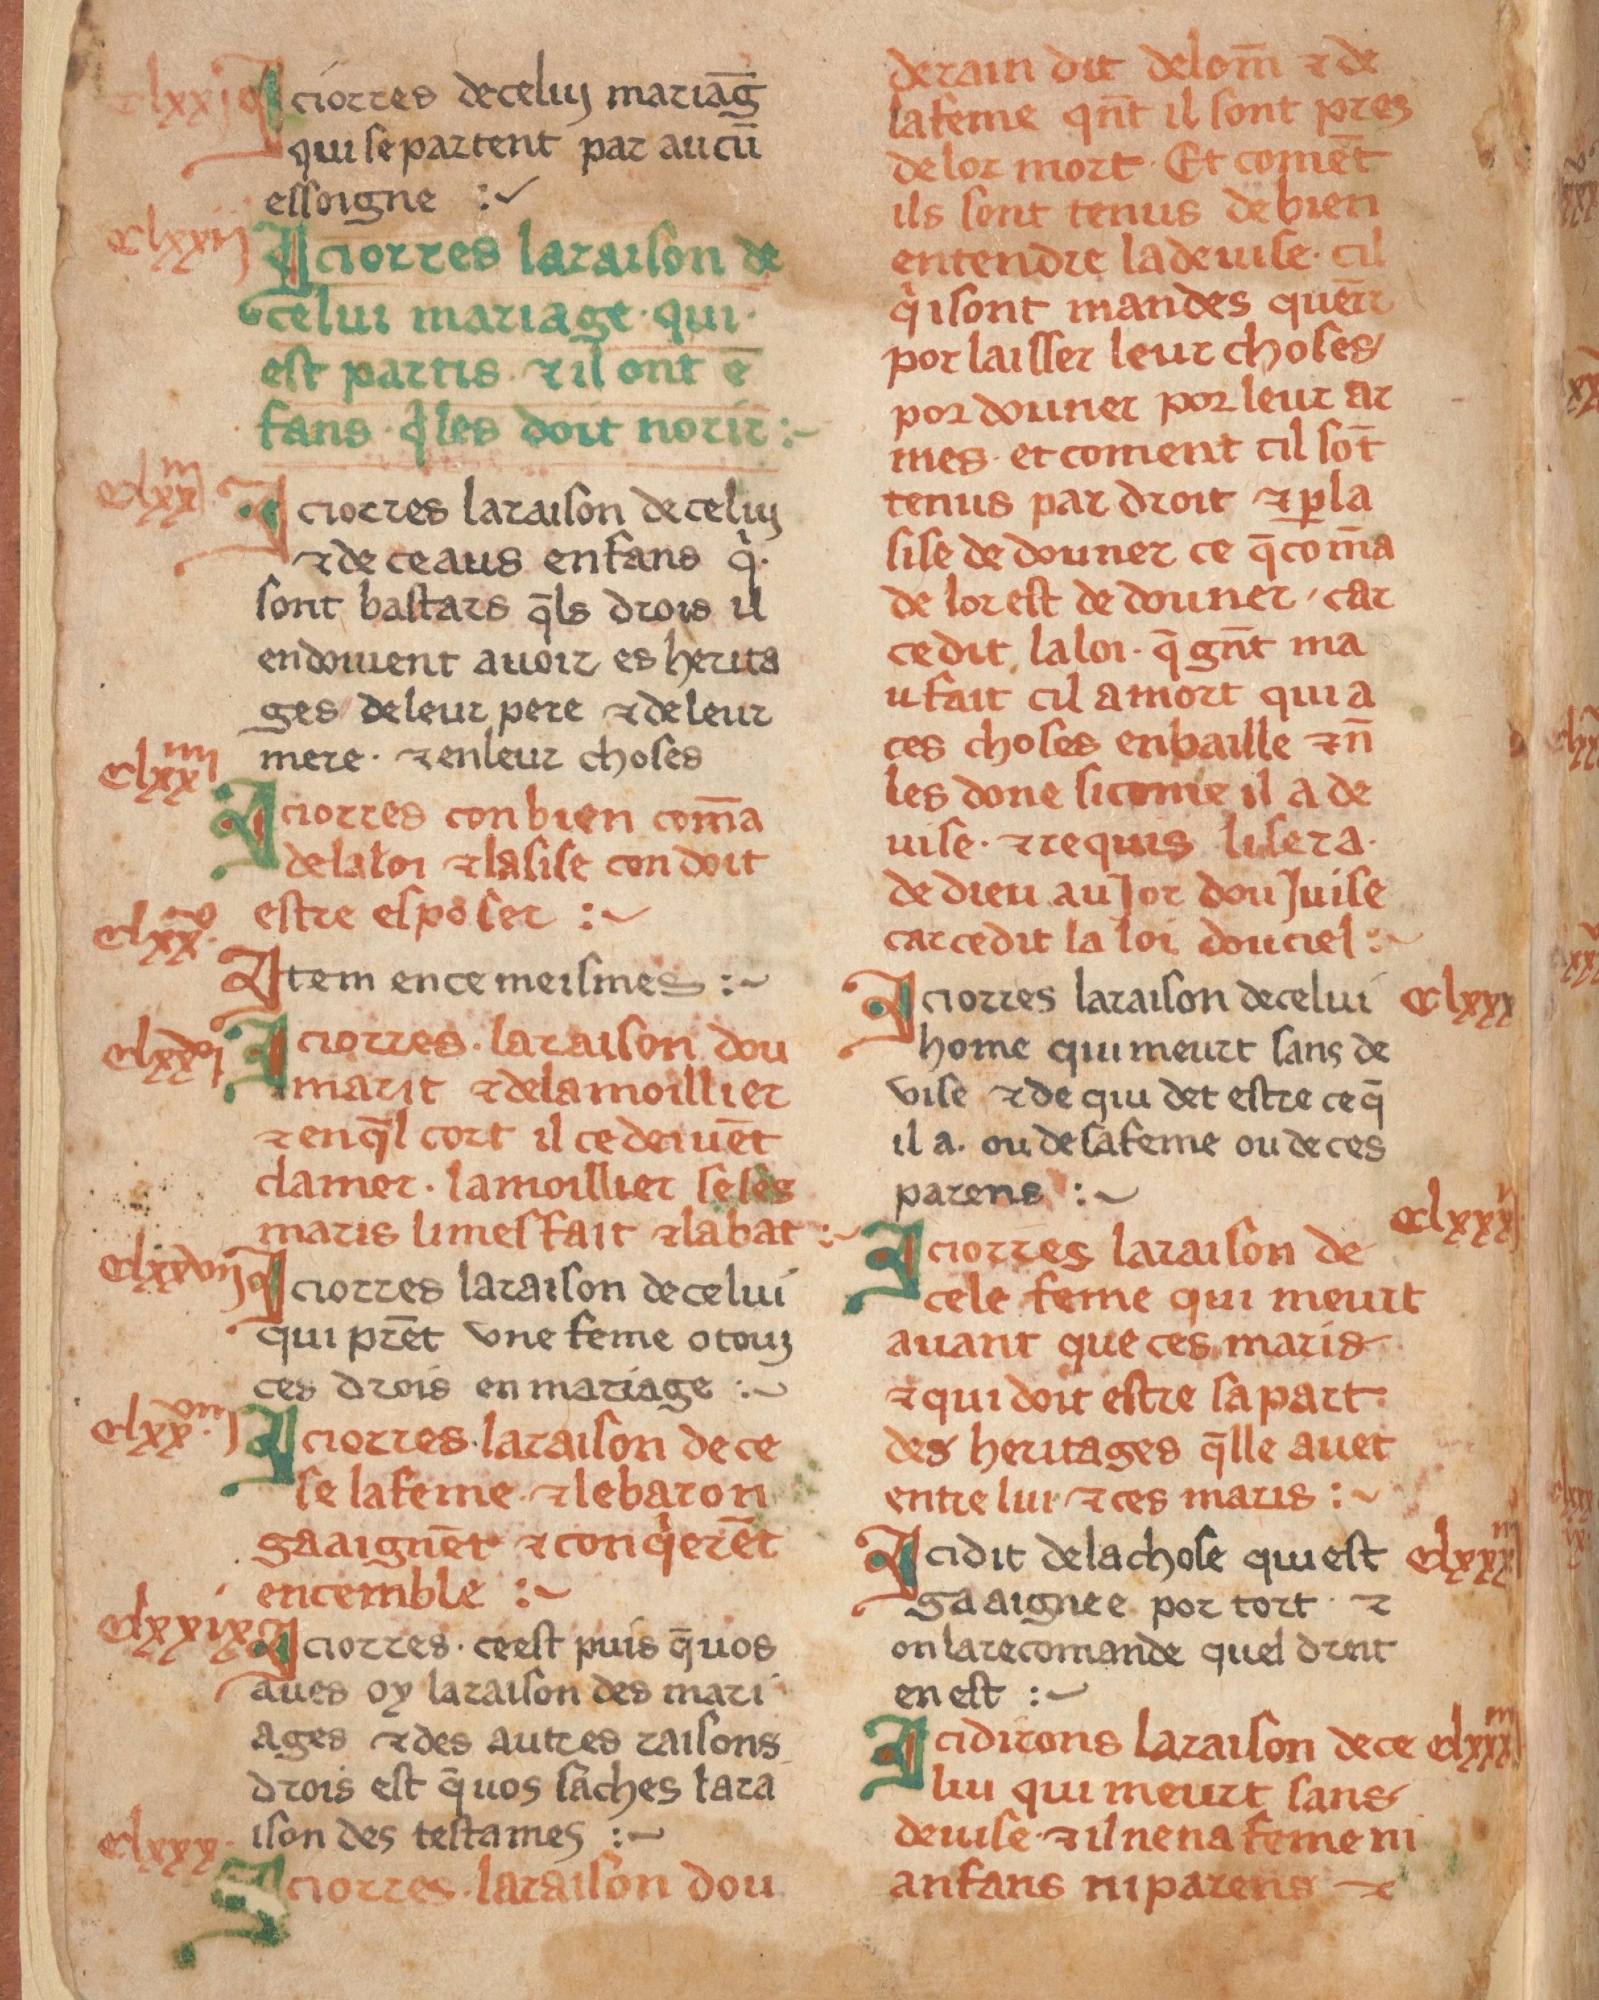 clxxj Iciorres de celuy mariag̅
qui se partent par aucū
essoigne :~
clxxij Iciorres la raison de
celui mariage · qui ·
est partis · ⁊ il ont ē
fans · q̇ les doit norir :~
clxxiij Iciorres la raison de celuy
⁊ de ceaus enfans q̇ ·
sont bastars q̄ls drois il
en doivent avoir es herita
ges de leur pere ⁊ de leur
mere · ⁊ en leur choses
clxxiiij Iciorres con bien com̄a
de la loi ⁊ lasise con doit
estre esposer :~
clxxv Item en ce meismes :~
clxxvj Iciorres · la raison dou
marit ⁊ de la moillier
⁊ en q̄l cort il ce deivēt
clamer · la moillier se ses
maris li mesfait ⁊ la bat :~
clxxvij Iciorres la raison de celui
qui prēt une feme o touz
ces drois en mariage :~
clxxviij Iciorres · la raison de ce
se la feme · ⁊ le baron
gaaignēt ⁊ conq̇erēt
encemble :~
clxxix Iciorres · ce est puis q̄ vos
aves oy la raison des mari
ages ⁊ des autres raisons
drois est q̄ vos saches la ra
ison des testames :~
clxxx · Iciorres · la raison dou
derain dit de lom̄ ⁊ de
la feme qn̄t il sont pres
de lor mort · Et comēt
ils sont tenus de bien
entendre la devise · cil
q̇ i sont mandes quērr
por laisser leur choses
por douner por leur ar
mes · et coment cil sōt
tenus par droit ⁊ p̱ la
sise de douner ce q̄ com̄a
de lor est de douner · car
ce dit la loi · q̄ gn̄t ma
u fait cil a mort qui a
ces choses en baille ⁊ n̄
les done si come il a de
vise · ⁊ requis li sera ·
de dieu au Jor dou Juise
car ce dit la loi dou ciel :~
Iciorres la raison de celui clxxx
home qui meurt sans de
vise ⁊ de qui det estre ce q̄
il a · ou de sa feme ou de ces
parens :~
clxxxij
Iciorres la raison de
cele feme qui meurt
avant que ces maris
⁊ qui doit estre sa part ·
des heritages q̄lle avet
entre lui ⁊ ces maris :~
Ici dit de la chose qui est clxxxiij
gaaignee por tort · ⁊
on la recomande quel dreit
en est :~
Ici dirons la raison de ce clxxxiiij
lui qui meurt sans
devise · ⁊ il nen a feme ni
anfans ni parens ⁊